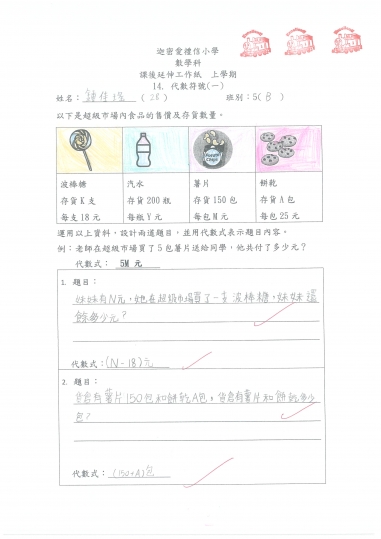 迦密愛禮信小學
數學科
課後延伸工作紙 上學期
14. 代數符號(一)
姓名： ( 28 ) 班別：5( B )
以下是超級市場內食品的售價及存貨數量。
波棒糖 汽水 薯片 餅乾
存貨 K 支 存貨 200 瓶 存貨 150 包 存貨 A 包
每支 18 元 每瓶 Y 元 每包 M 元 每包 25 元
運用以上資料，設計兩道題目，並用代數式表示題目內容。
例：老師在超級市場買了 5 包薯片送給同學，他共付了多少元？
代數式： 5M 元
1. 題目：
妹妹有N元，她在超級市場買了一支波棒糖，妹妹還
餘多少元？
代數式：(N - 18)元
2. 題目：
貨倉有薯片150包和餅乾A包，貨倉有薯片和餅乾多少
包？
代數式：(150+A)包